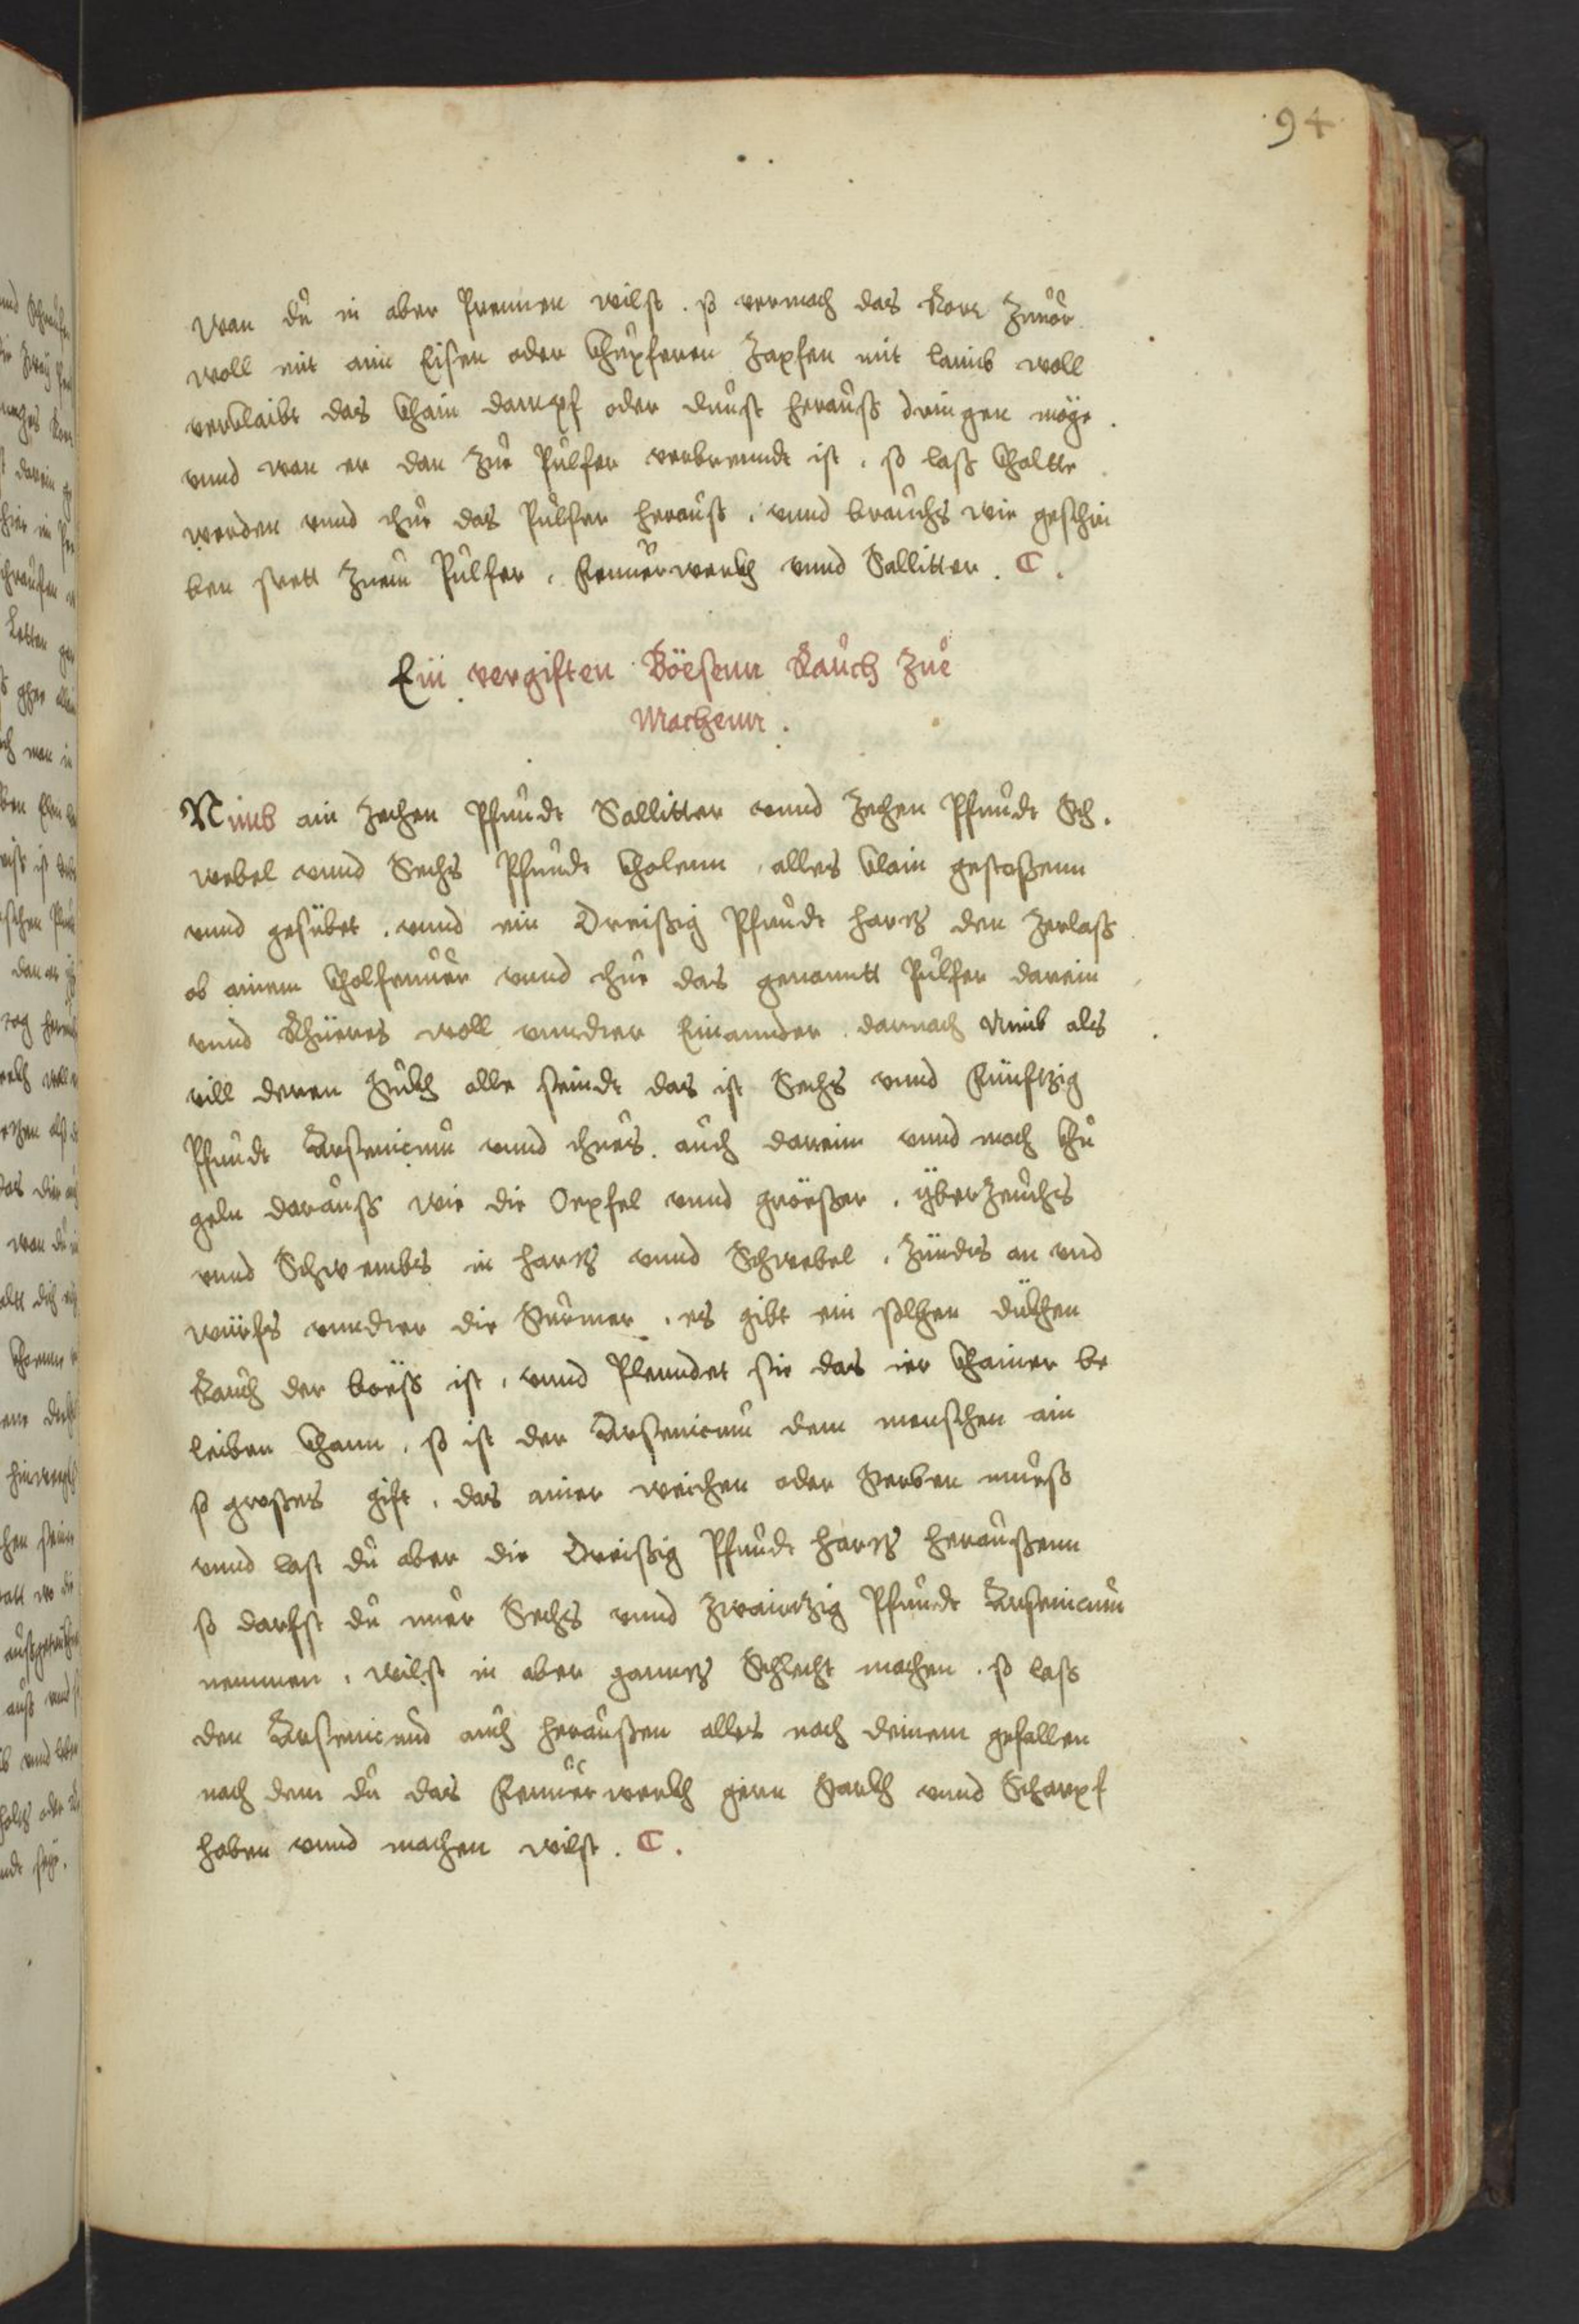 94
wan du in aber prennen wilst . so vermach das Ror Zuuor
woll mit ain Eisen oder Khupferen Zapfen mit laimb woll
verklaibt das Khain dampf oder dunst herauss dringen möge .
vnnd wan er dan Zue Pulfer verbrenndt ist , so lass Khaltte
werden vnnd thue das Pulfer herauss , vnnd brauchs wie geschri
ben stett Zuem Pulfer , Feuuerwerkh vnnd Sallitter . C .
Ein vergiften Böesenn Rauch Zue
Machenn .
Nimb ain Zechen Pfundt Sallitter vnnd Zechen Pfundt Sch .
webel vnnd Sechs Pfundt Kholenn , alles Klain gestossenn
vnnd gesübet , vnnd ein Dreissig Pfundt hartz den Zerlass
ob ainem Kholfeuuer vnnd thue das genanntt Pulfer darein
vnnd Rhüeres woll vnndter Einannder . darnach Nimb als
vill deren Stukh alle seindt das ist Sechs vnnd Fünftzig
Pfundt Arsenicum vnnd thues . auch darein vnnd mach Khu
geln darauss wie die Oepfel vnnd gröesser , überzeuchs
vnnd Schwembs in hartz vnnd Schwebel , Zündts an vnd
würfs vnndter die Stürmer , es gibt ein solhen dükhen
Rauch der böess ist , vnnd Plenndet sie das ier Khainer be
leiben Khann , so ist der Arsenicum dem menschen ain
so grosses gift , das ainer weichen oder Sterben muess
vnnd last du aber die Dreissig Pfundt hartz heraussenn
so darfst du nuer Sechs vnnd Zwaintzig Pfundt Arsenicum
nemmen , wilst in aber ganntz Schlecht machen . so lass
den Arsenicum auch heraussen alles nach deinem gefallen
nach dem du das Feuuerwerkh gern Starkh vnnd Scharpf
haben vnnd machen wilst . C .